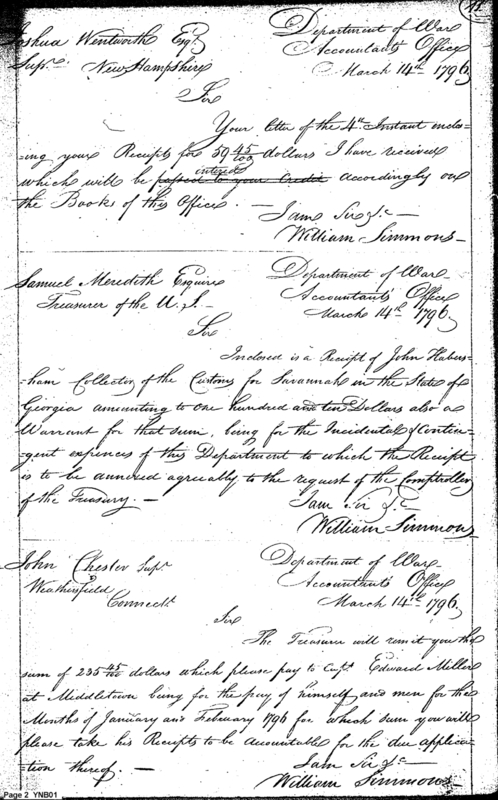 Joshua Wentworth Esqr
Supr. New Hampshire
Department of War
Accountants Office
March 14th 1796
Sir
Your letter of the 4th Instant enclo-
-sing your Receipts for 59 45/100 dollars I have received
which will be passed to your Credit entered accordingly on
the Books of this Office. —
I am Sir &c —
William Simmons —
Samuel Meredith Esquire
Treasurer of the U. S. —
Department of War
Accountants Office
March 14th 1796
Sir
Inclosed is a Receipt of John Habers-
-ham Collector of the Customs for Savannah in the State of
Georgia amounting to one hundred and ten Dollars also a
Warrant for that sum, being for the Incidental & Contin-
-gent expences of this Department to which the Receipt
is to be annexed agreeably to the request of the Comptroller
of the Treasury. —
I am Sir &c
William Simmons
John Chester Supr
Weathersfield
Connectt
Department of War
Accountants Office
March 14th 1796
Sir
The Treasurer will remit you the
sum of 235 45/100 dollars which please pay to Capt. Edward Miller
at Middletown being for the pay of himself and men for the
Months of January and February 1796 for which sum you will
please take his Receipts to be accountable for the due applica-
-tion thereof. —
I am Sir &c —
William Simmons
Page 2 YNB01